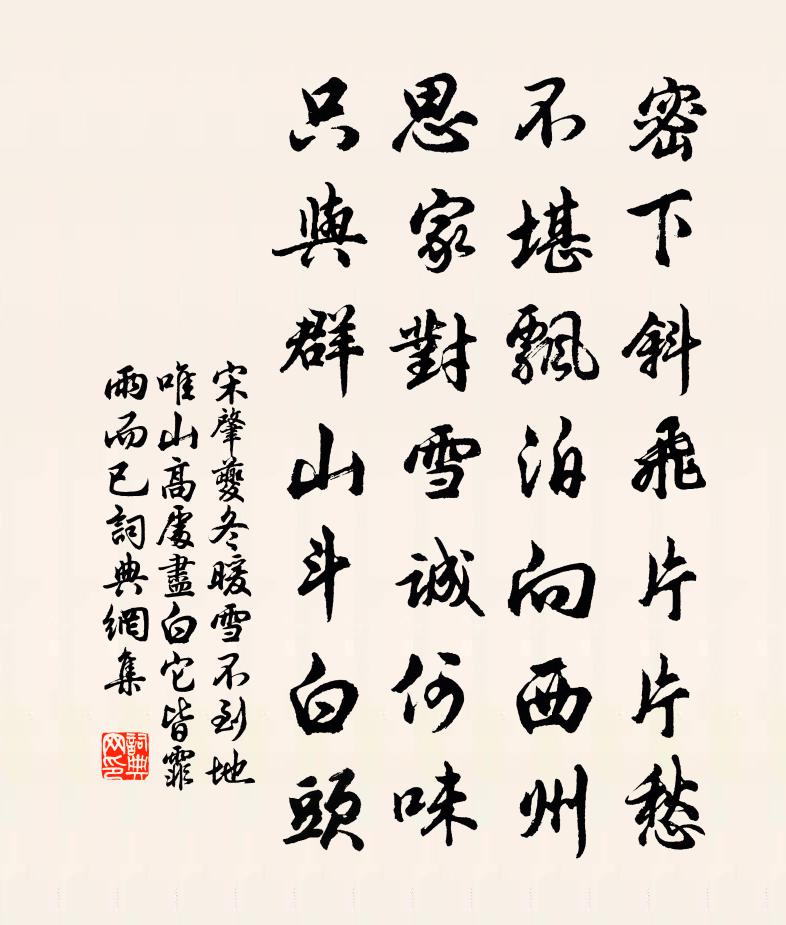 密下斜飛片片愁
不堪飄泊向西州
思家對雪誠何味
只與群山斗白頭
宋肇夔冬暖雪不到地
唯山高處盡白它皆霏
雨而已詞典網集
詞典
网印